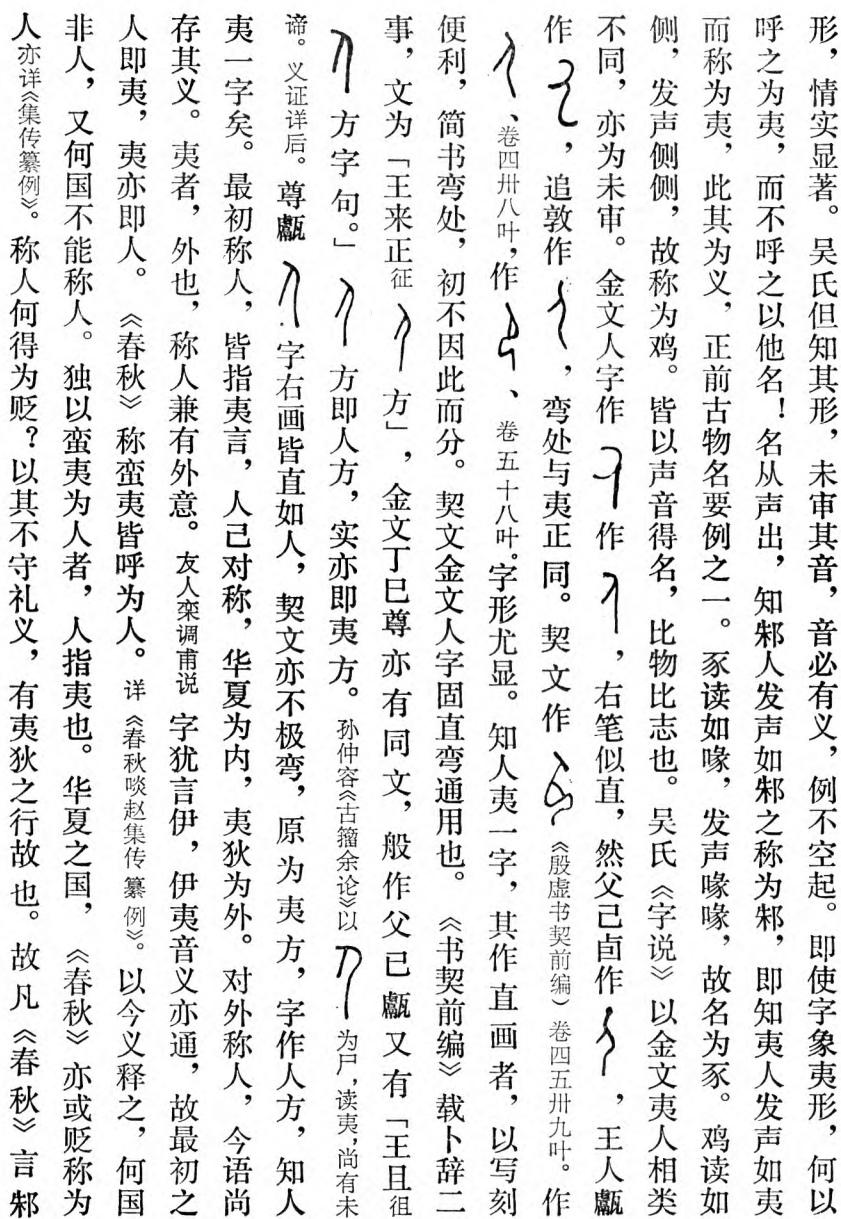 形，情实显著。吴氏但知其形，未审其音，音必有义，例不空起。即使字象夷形，何以
呼之为夷，而不呼之以他名！名从声出，知邾人发声如邾之称为邾，即知夷人发声如夷
而称为夷，此其为义，正前古物名要例之一。豕读如喙，发声喙喙，故名为豕。鸡读如
侧，发声侧侧，故称为鸡。皆以声音得名，比物比志也。吴氏《字说》以金文夷人相类
不同，亦为未审。金文人字作 作 ，右笔似直，然父己卣作 ，王人甗
作 ，追敦作 ，弯处与夷正同。契文作 《殷虚书契前编》卷四五卅九叶。作
、卷四卅八叶，作 、卷五十八叶。字形尤显。知人夷一字，其作直画者，以写刻
便利，简书弯处，初不因此而分。契文金文人字固直弯通用也。《书契前编》载卜辞二
事，文为「王来正征 方」，金文丁巳尊亦有同文，般作父己甗又有「王且徂
方字句。」 方即人方，实亦即夷方。孙仲容《古籀余论》以 为尸，读夷，尚有未
谛。义证详后。尊甗 字右画皆直如人，契文亦不极弯，原为夷方，字作人方，知人
夷一字矣。最初称人，皆指夷言，人己对称，华夏为内，夷狄为外。对外称人，今语尚
存其义。夷者，外也，称人兼有外意。友人栾调甫说字犹言伊，伊夷音义亦通，故最初之
人即夷，夷亦即人。《春秋》称蛮夷皆呼为人。详《春秋啖赵集传纂例》。以今义释之，何国
非人，又何国不能称人。独以蛮夷为人者，人指夷也。华夏之国，《春秋》亦或贬称为
人亦详《集传纂例》。称人何得为贬？以其不守礼义，有夷狄之行故也。故凡《春秋》言邾